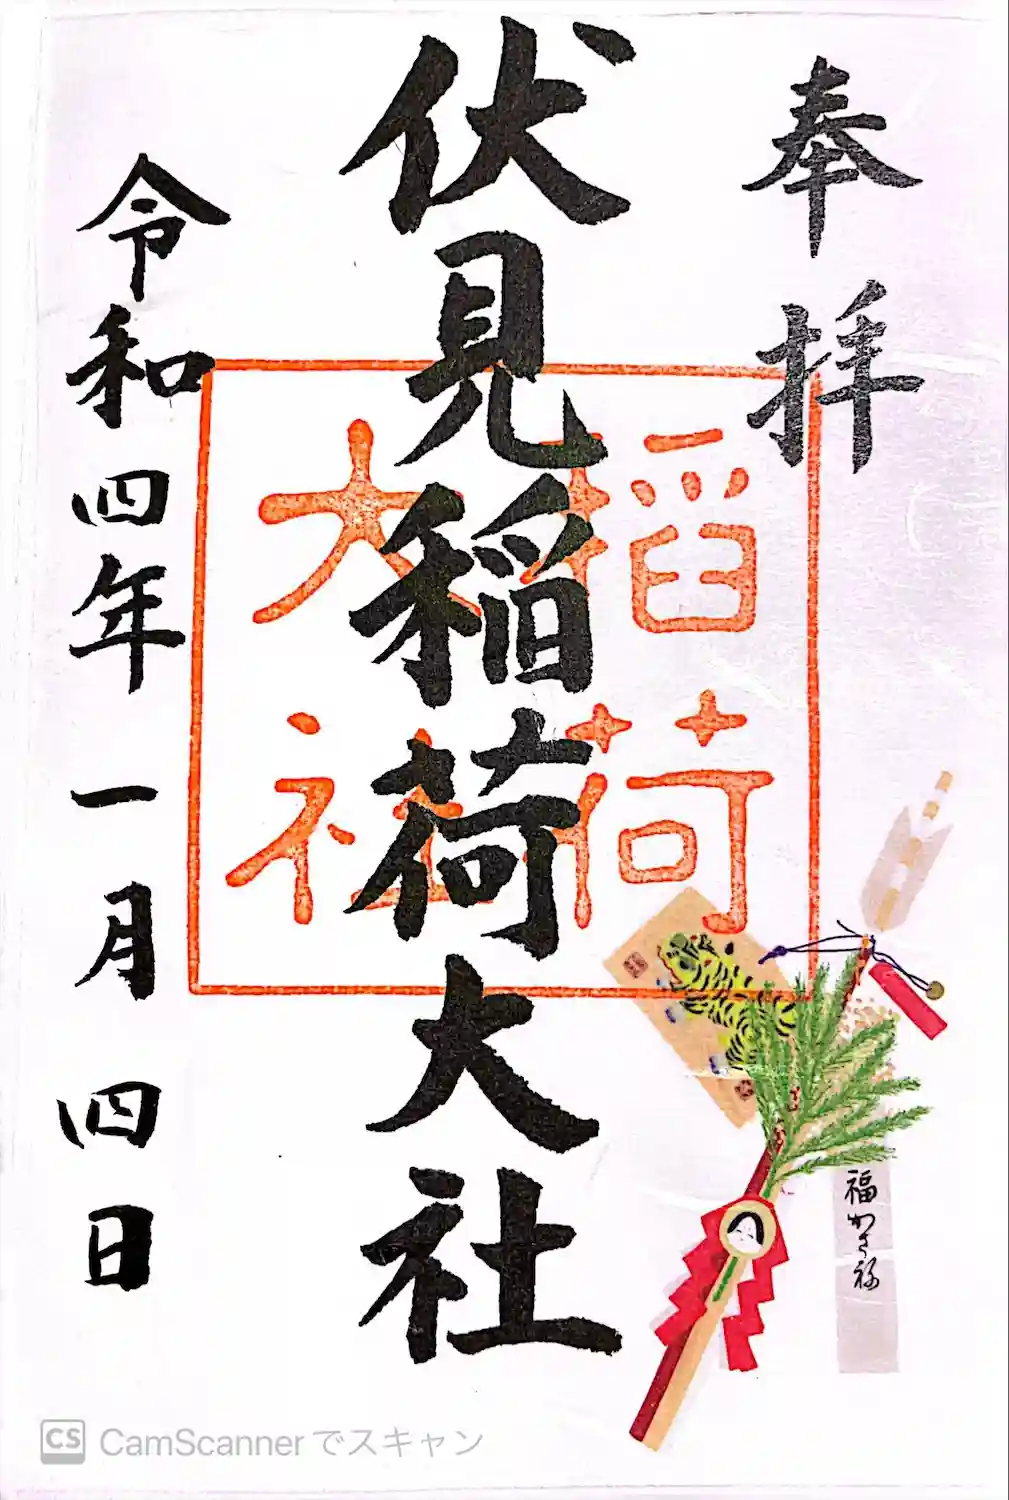 奉拝
伏見稲荷大社
令和四年一月四日
稲荷
大社
福かさね
CS CamScannerでスキャン